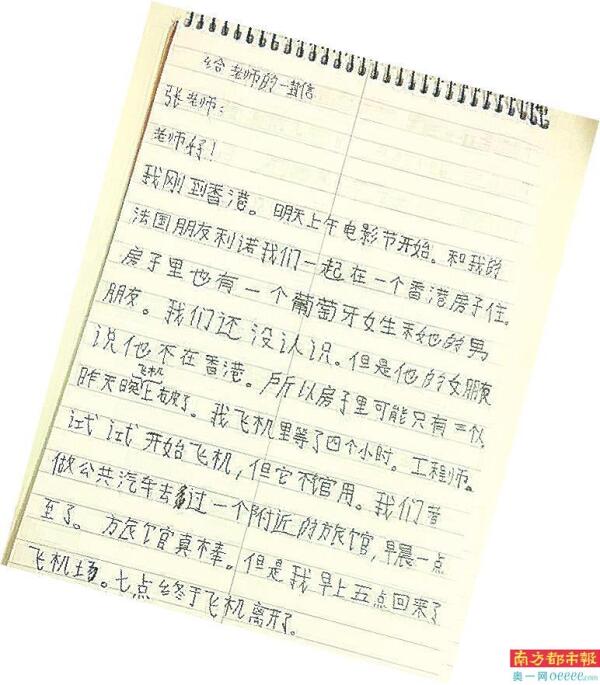 给老师的一封信
张老师：
老师好！
我刚到香港。明天上午电影节开始。和我的
法国朋友利诺我们一起在一个香港房子住。
房子里也有一个葡萄牙女生和她的男
朋友。我们还没认识。但是他的女朋友
说他不在香港。所以房子里可能只有三个人
飞机
昨天晚上破了。我飞机里等了四个小时。工程师
试试开始飞机，但它不管用。我们
做公共汽车去过一个附近的旅馆，早晨一点
至了。旅馆真棒。但是我早上五点回来了
飞机场。七点终于飞机离开了。
南方都市報
奥一网oeeee.com